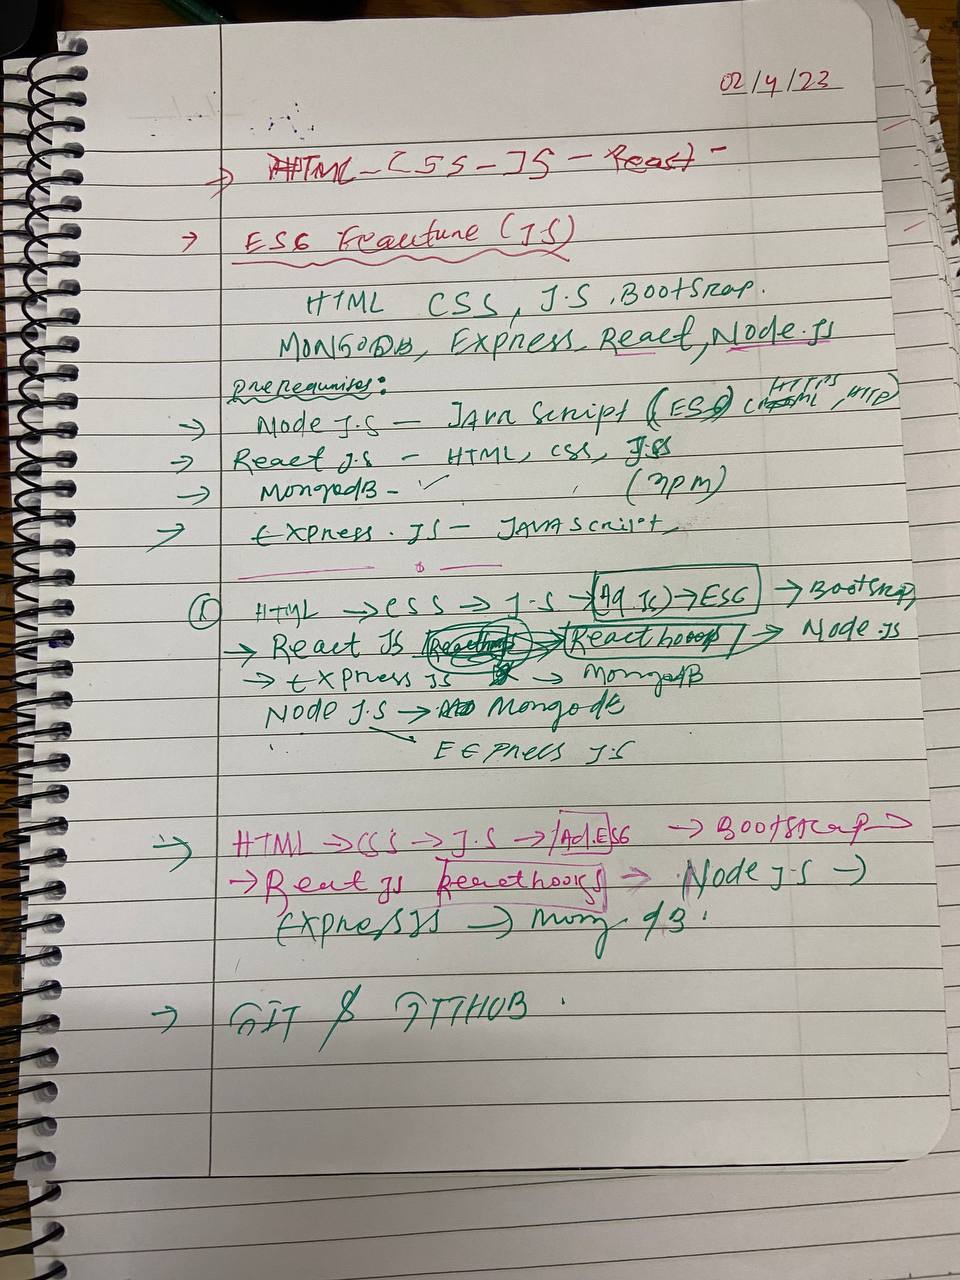 02/4/23
→ HTML - CSS - JS - React -
→ ES6 Feauture (JS)
HTML CSS, J.S, BootSrap.
MONGODB, Express, React, Node.js
Prerequnises:
→ Node J.S - JAVA Script (ES6) HTTPS, HTTP)
→ React J.S - HTML, CSS, J.S
→ MongodB - ✓ (npm)
→ Express.JS - JAVAScript,
HTML → CSS → J.S → (Ad.Js) → ES6 → BootSrap
→ React JS → React hooop → Node.Js
→ Express JS → MongodB
Node J.S → MongodB
EEpress J.S
→ HTML → CSS → J.S → Ad.ES6 → Bootstrap →
→ Reat JS Reacthooks → Node J.S →
ExpressJs → Mong dB.
→ GIT & GITHUB.